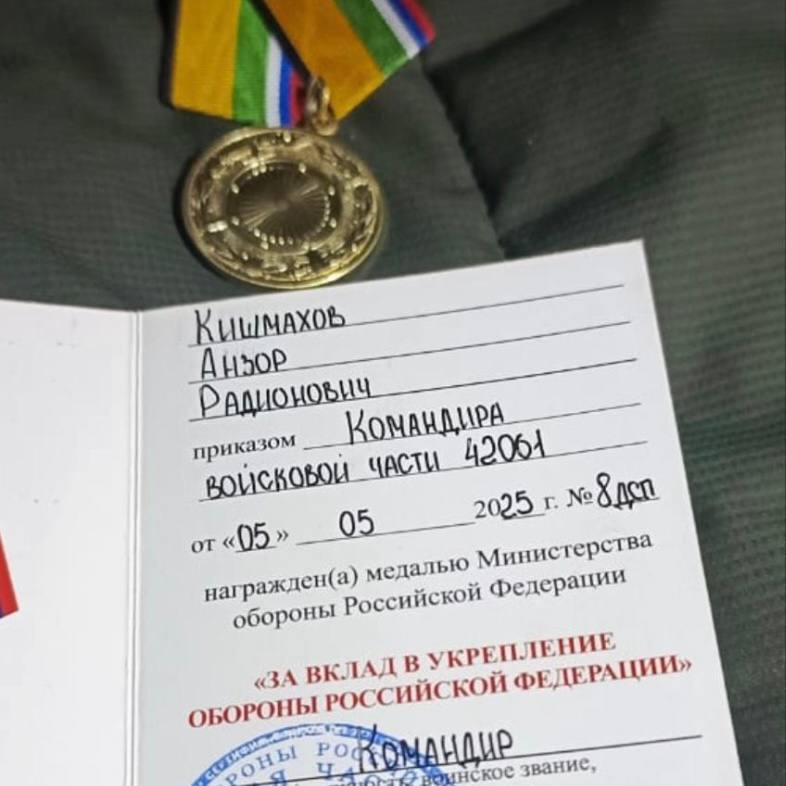 Кишмахов
Анзор
Радионович
приказом Командира
войсковой части 42061
от «05» 05 2025 г. № 8дсп
награжден(а) медалью Министерства
обороны Российской Федерации
«ЗА ВКЛАД В УКРЕПЛЕНИЕ
ОБОРОНЫ РОССИЙСКОЙ ФЕДЕРАЦИИ»
Командир
воинское звание,